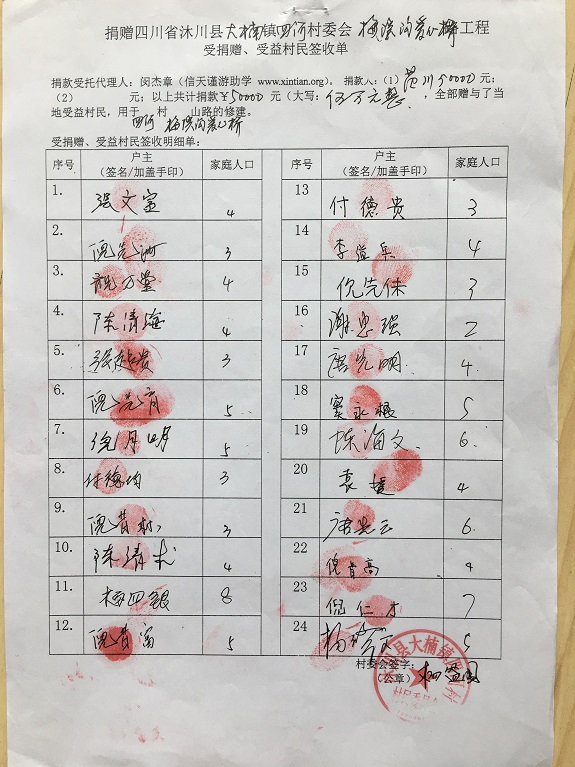 捐赠四川省沐川县大楠镇四河村委会梅溪沟爱心桥工程
受捐赠、受益村民签收单
捐款受托代理人：闵杰章（信天谨游助学 www.xintian.org）。捐款人：（1）范川 50000 元；
（2） 元；以上共计捐款￥50000元（大写：伍万元整，全部赠与了当
地受益村民，用于 村 山路的修建。
四河 梅溪沟爱心桥
受捐赠、受益村民签收明细单：
序号 户主（签名/加盖手印） 家庭人口 序号 户主（签名/加盖手印） 家庭人口
1. 张文富 4 13 付德贵 3
2. 3 14 4
3. 4 15 倪先 3
4. 陈清海 4 16 谢忠强 2
5. 3 17 唐先明 4
6. 5 18 窦永根 5
7. 5 19 陈海文 6
8. 付德均 3 20 袁 4
9. 3 21 唐先云 6
10. 陈清 4 22 倪育高 4
11. 梅四银 8 23 倪仁才 7
12. 5 24 杨 5
村委会签字：
（公章）
县大楠镇